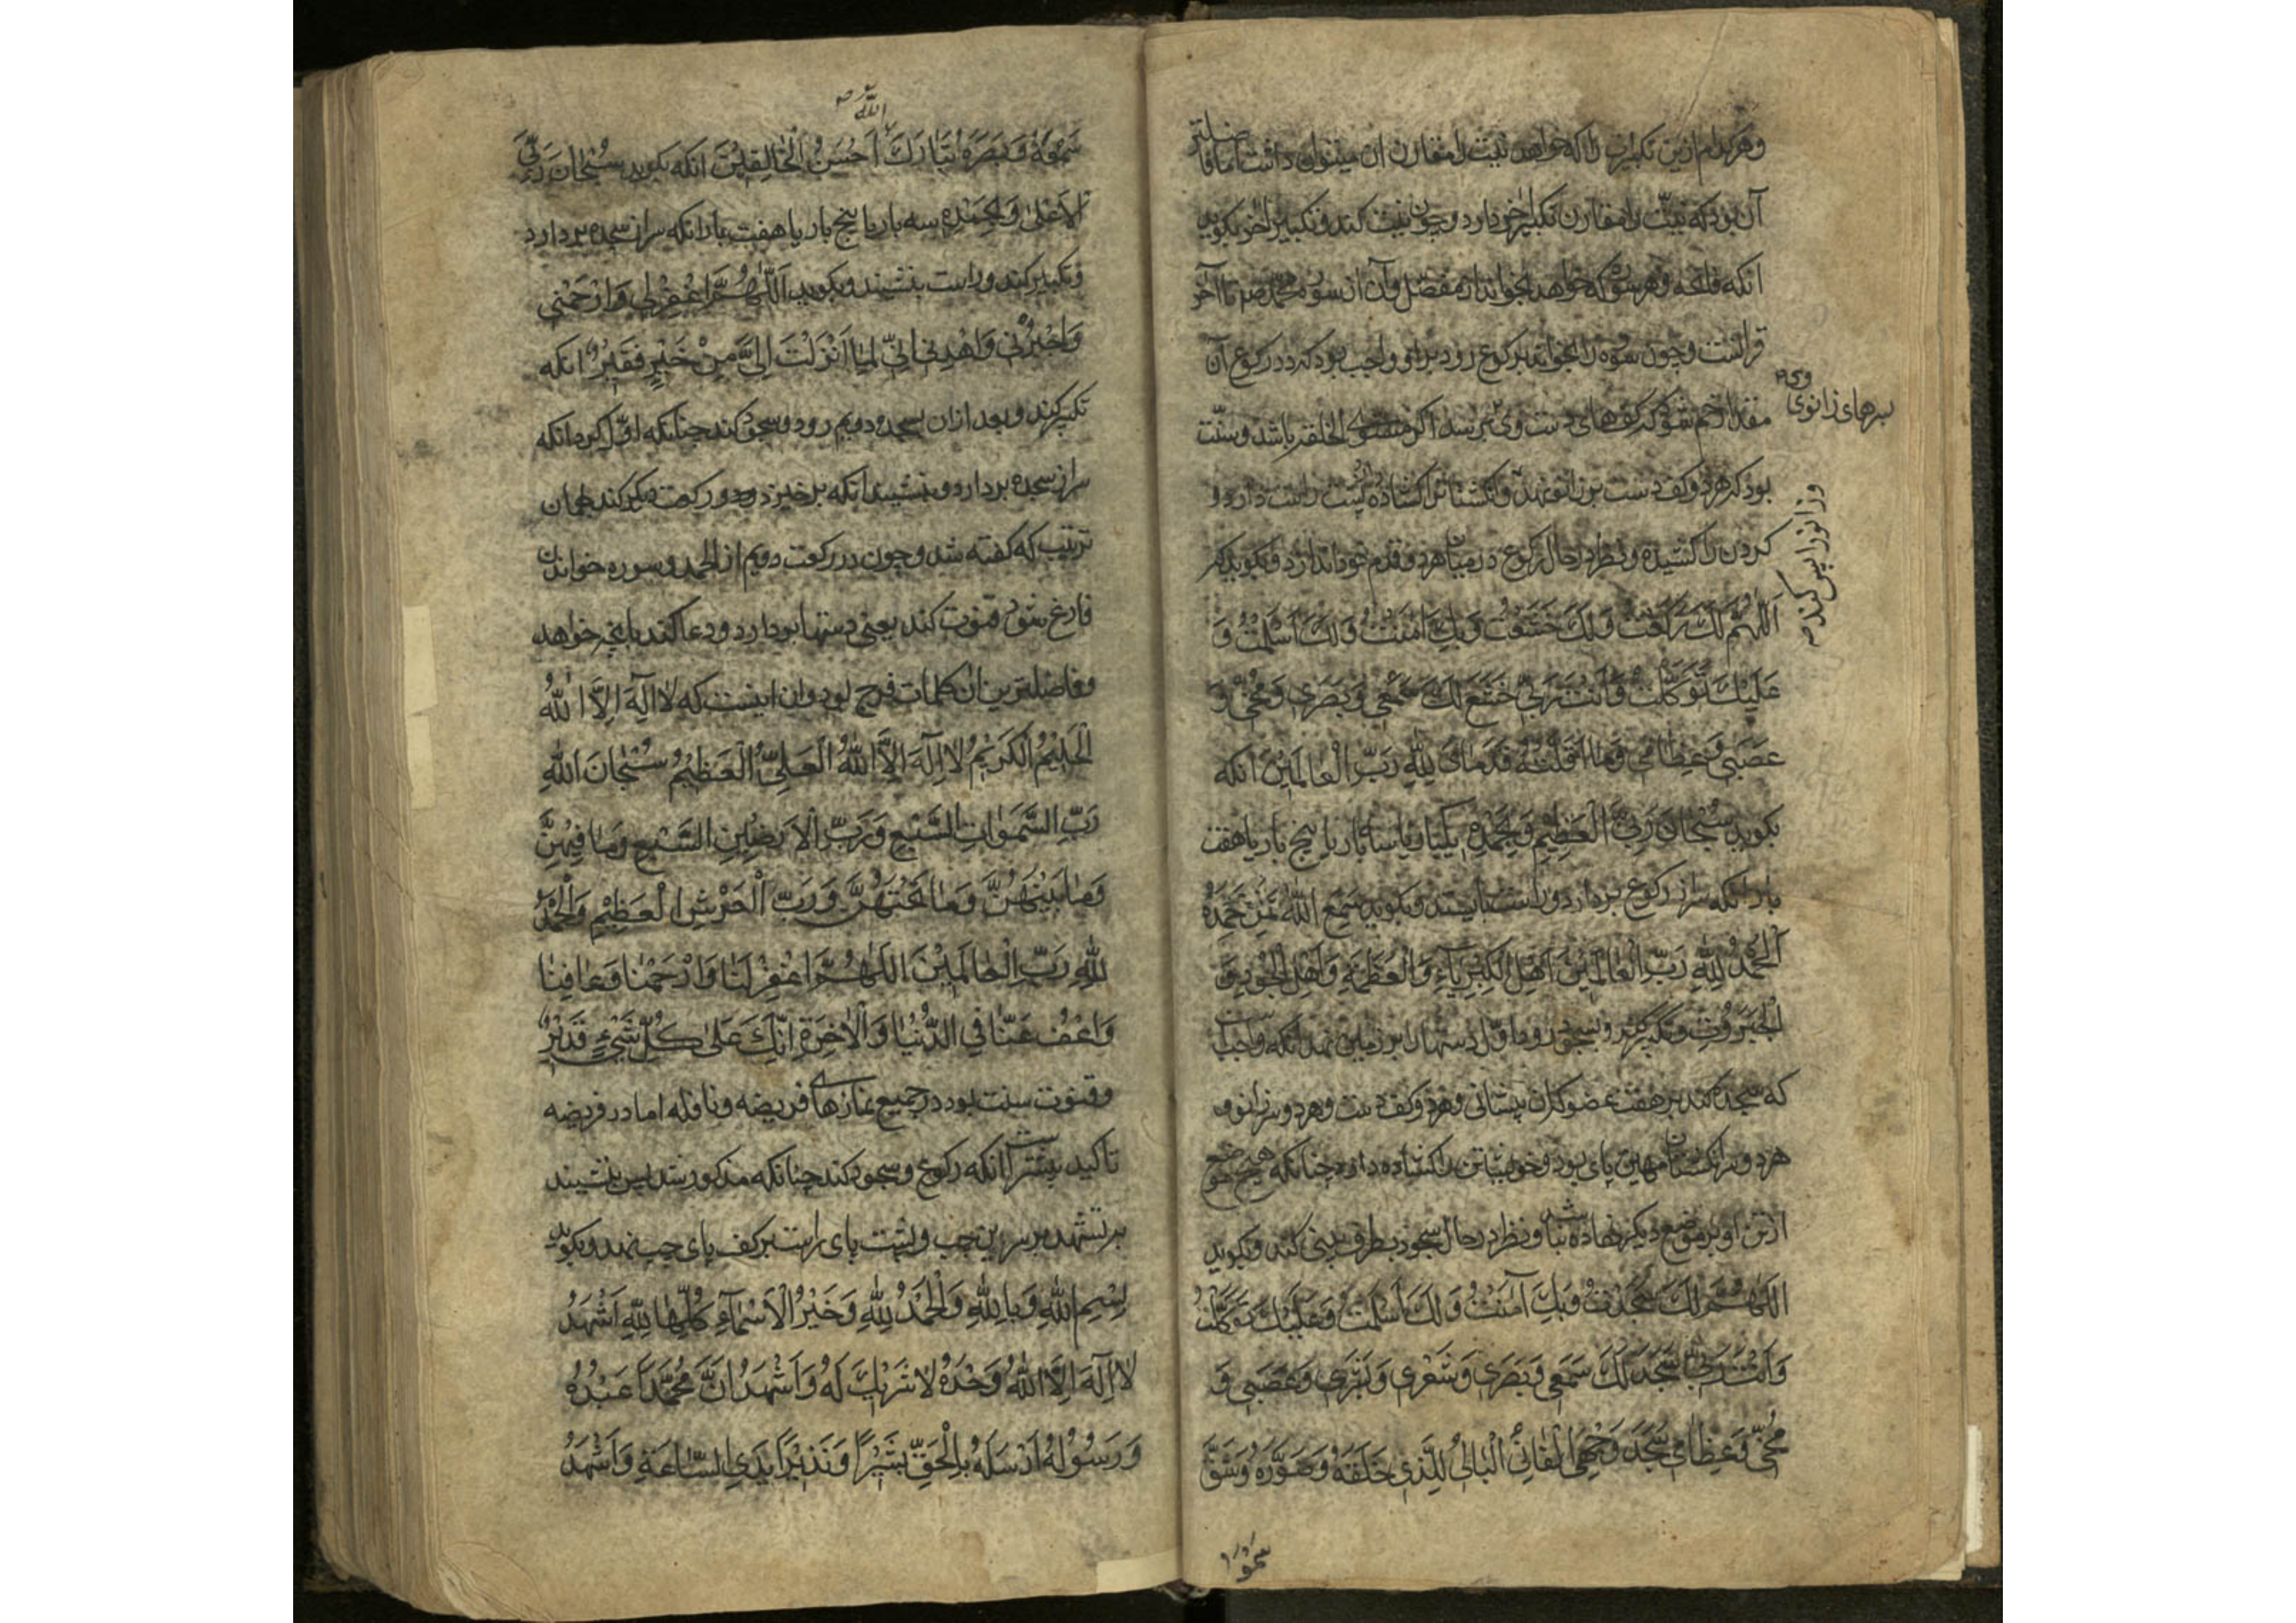 وهر کدام ازین تکبیرات را که خواهد نیت را مقارن آن میتوان داشت اما فاضلتر
آن بود که نیت را مقارن تکبیر آخر دارد و چون نیت کند و تکبیر آخر بکوید
انکه فاتحه و هر سوره که خواهد بخواند از مفصل و آن از سوره محمد ص تا آخر
قرآنست و چون سوره را بخواند برکوع رود بر او واجب بود که در رکوع آن
مقدار خم شود که کفهای دست وی برسد اکر مستوی الخلقه باشد و سنت
بسرهای زانوی وی
بود که هر دو کف دست بر زانو نهد و انکشتانرا کشاده پشت راست دارد و
وزانو را پس کند
کردن را کشیده و نظر در حال رکوع در میان هر دو قدم خود اندازد و بکوید که
اَللّهُمَّ لَكَ رَكَعْتُ وَلَكَ خَشَعْتُ وَبِكَ آمَنْتُ وَلَكَ اَسْلَمْتُ وَ
عَلَيْكَ تَوَكَّلْتُ وَاَنْتَ رَبّي خَشَعَ لَكَ سَمْعي وَبَصَري وَمُخّي وَ
عَصَبي وَعِظامي وَما اَقَلَّتْهُ قَدَمايَ لِلّهِ رَبِّ الْعالَمينَ انکه
بکوید سُبْحانَ رَبِّيَ الْعَظيمِ وَبِحَمْدِهِ یکبار یا سه بار یا پنج بار یا هفت
بار انکه سر از رکوع بردارد و راست بایستد و بکوید سَمِعَ اللهُ لِمَنْ حَمِدَهُ
اَلْحَمْدُ لِلّهِ رَبِّ الْعالَمينَ اَهْلِ الْكِبْرِيآءِ وَالْعَظَمَةِ وَاَهْلِ الْجُودِ وَ
الْجَبَرُوتِ و تکبیر کند و بسجود رود و اول دستها را بر زمین نهد انکه واجب است
که سجده کند بر هفت عضو که آن پیشانی و هر دو کف دست و هر دو سر زانو و
هر دو سر انکشتان مهین پای بود و خویشتن را کشاده دارد چنانکه هیچ موضع
از تن او بر موضع دیکر نهاده نباشد و نظر در حال سجود بطرف بینی کند و بکوید
اللّهُمَّ لَكَ سَجَدْتُ وَبِكَ آمَنْتُ وَلَكَ اَسْلَمْتُ وَعَلَيْكَ تَوَكَّلْتُ
وَاَنْتَ رَبّي سَجَدَ لَكَ سَمْعي وَبَصَري وَشَعْري وَبَشَري وَعَصَبي وَ
مُخّي وَعِظامي سَجَدَ وَجْهِيَ الْفانِي الْبالي لِلَّذي خَلَقَهُ وَصَوَّرَهُ وَشَقَّ
سمعه
الله
سَمْعَهُ وَبَصَرَهُ تَبارَكَ اَحْسَنُ الْخالِقينَ انکه بکوید سُبْحانَ رَبِّيَ
الْاَعْلى وَبِحَمْدِهِ سه بار یا پنج بار یا هفت بار انکه سر از سجده بر دارد
و تکبیر کند و راست بنشیند و بکوید اَللّهُمَّ اغْفِرْلي وَارْحَمْني
وَاجْبُرْني وَاهْدِني اِنّي لِما اَنْزَلْتَ اِلَيَّ مِنْ خَيْرٍ فَقيرٌ انکه
تکبیر کند و بعد از ان بسجده دویم رود و سجود کند چنانکه اول کرد انکه
سر از سجده بردارد و بنشیند انکه برخیزد و دو رکعت دیکر کند بهمان
ترتیب که کفته شد و چون در رکعت دویم از الحمد و سوره خواندن
فارغ شود قنوت کند یعنی دستها بردارد و دعا کند بانچه خواهد
و فاضلترین ان کلمات فرج بود و ان اینست که لا اِلهَ اِلَّا اللهُ
الْحَليمُ الْكَريمُ لا اِلهَ اِلَّا اللهُ الْعَلِيُّ الْعَظيمُ سُبْحانَ اللهِ
رَبِّ السَّمواتِ السَّبْعِ وَرَبِّ الْاَرَضينَ السَّبْعِ وَما فيهِنَّ
وَما بَيْنَهُنَّ وَما تَحْتَهُنَّ وَرَبِّ الْعَرْشِ الْعَظيمِ وَالْحَمْدُ
لِلّهِ رَبِّ الْعالَمينَ اللّهُمَّ اغْفِرْ لَنا وَارْحَمْنا وَعافِنا
وَاعْفُ عَنّا فِي الدُّنْيا وَالْاخِرَةِ اِنَّكَ عَلى كُلِّ شَيْءٍ قَديرٌ
و قنوت سنت بود در جمیع نمازهای فریضه و نافله اما در فریضه
تاکید بیشتر است انکه رکوع و سجود کند چنانکه مذکور شد پس بنشیند
بر تشهد بر سرین چپ و پشت پای راست بر کف پای چپ نهد و بکوید
بِسْمِ اللهِ وَبِاللهِ وَالْحَمْدُ لِلّهِ وَخَيْرُ الْاَسْمآءِ كُلِّها لِلّهِ اَشْهَدُ
لا اِلهَ اِلَّا اللهُ وَحْدَهُ لا شَريكَ لَهُ وَاَشْهَدُ اَنَّ مُحَمَّداً عَبْدُهُ
وَرَسُولُهُ اَرْسَلَهُ بِالْحَقِّ بَشيراً وَنَذيراً بَيْنَ يَدَيِ السّاعَةِ وَاَشْهَدُ